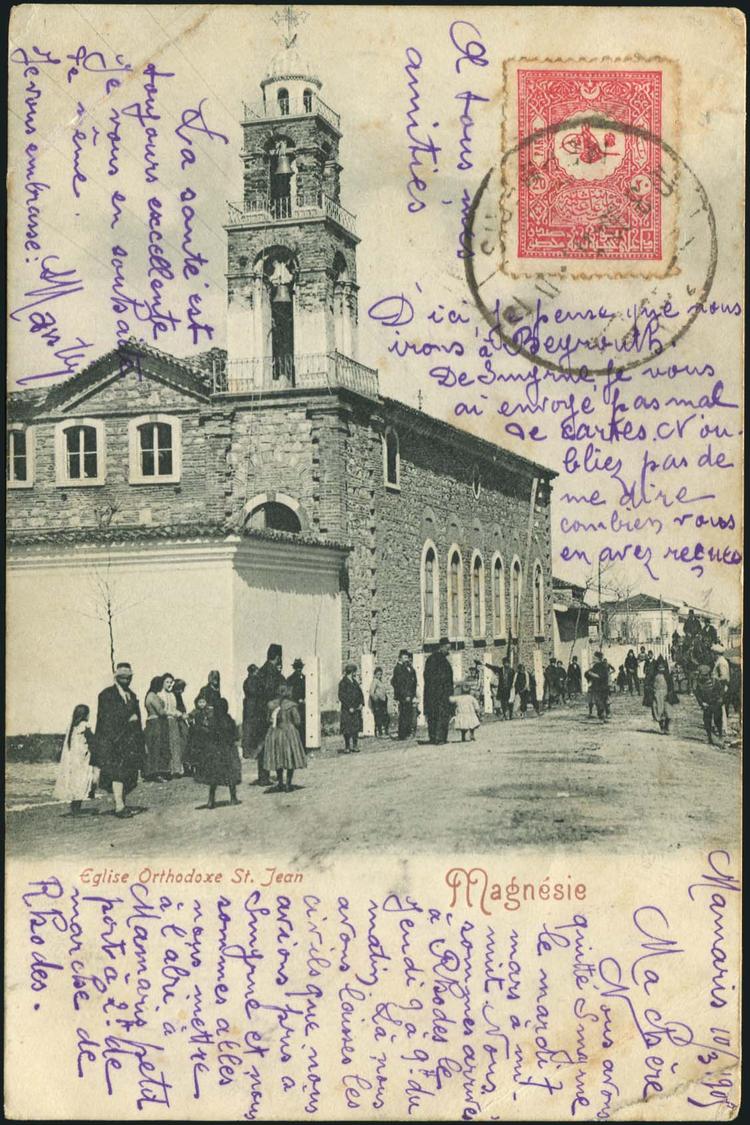 Mamaris 10/3/905
Ma Chère
Nous avons
quitté Smyrne
le mardi 7
mars à mi-
nuit. Nous
sommes arrivés
à Rhodes le
Jendi 9 à 9h du
matin. Là nous
avons laissés les
civils que nous
avions pris a
Smyrne et nous
sommes allés
nous mettre
à l'abri à
Mamaris petit
port à 2h de
marche de
Rhodes.
D'ici, je pense que nous
irons à Beyrouth.
De Smyrne, je vous
ai envoyé pas mal
de cartes. N'ou-
bliez pas de
me dire
combien vous
en avez reçues
A tous mes
amitiés
La santé est
toujours excellente
Je vous en souhaite
de même.
Je vous embrasse:
Eglise Orthodoxe St. Jean
Magnésie